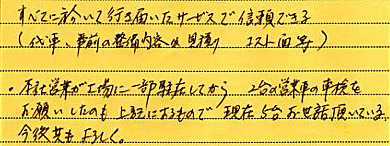 すべてに於いて行き届いたサービスで信頼できる
(代車、事前の整備内容の見積り コスト面等)
・本社営業が工場に一部駐在してから 2台の営業車の車検を
お願いしたのも上記によるもので 現在5台お世話頂いている。
今後共よろしく。